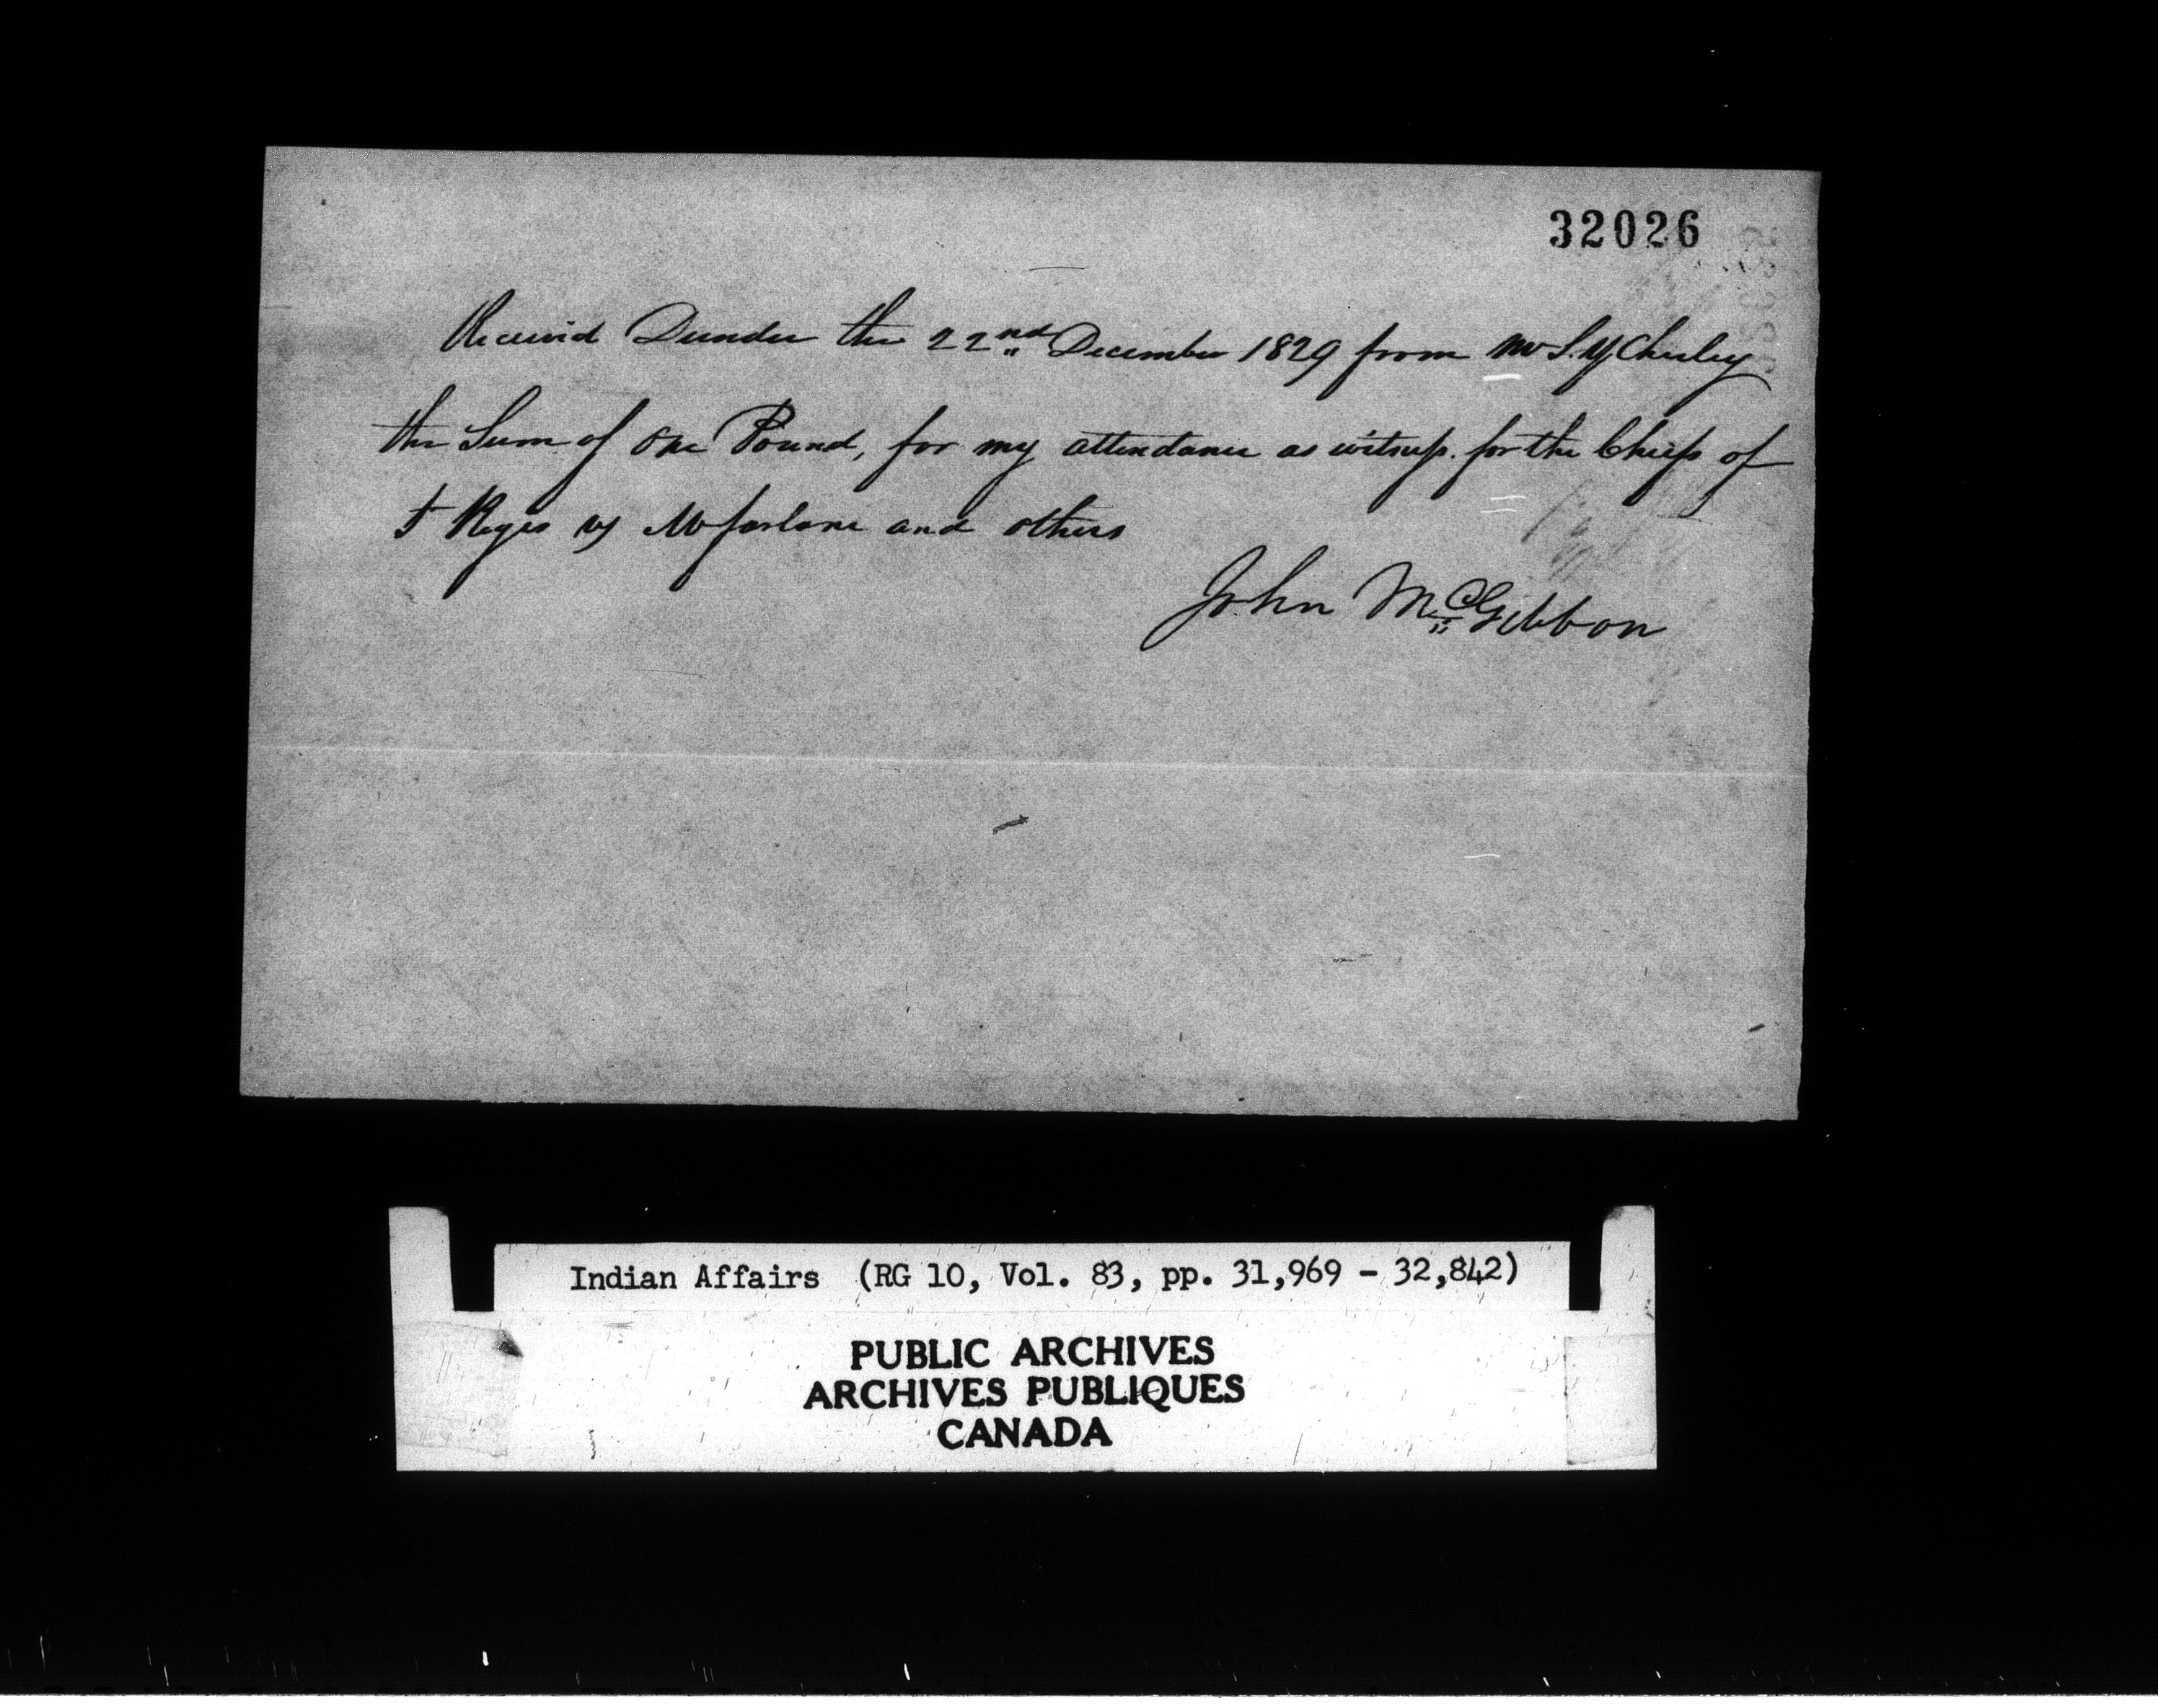 32026
Received Dundee the 22nd December 1829 from Mr S. Y. Chesley
the Sum of One Pound, for my attendance as witness. for the Chiefs of
St Regis vs McFarlane and others
John McGibbon
Indian Affairs (RG 10, Vol. 83, pp. 31,969 - 32,842)
PUBLIC ARCHIVES
ARCHIVES PUBLIQUES
CANADA